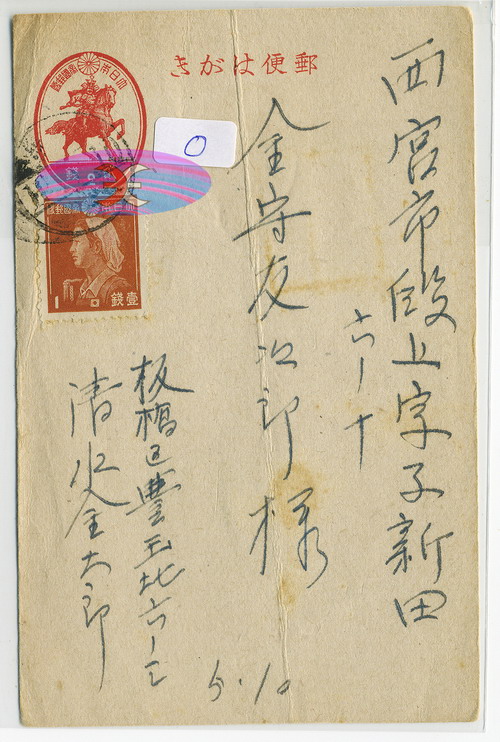 郵便はがき
大日本帝國郵便
大日本帝國郵便
壹錢
1
0
西宮市段上字子新田
六ノ十
金守友次郎様
板橋區豊玉北六ノ三
清水金太郎
5.10